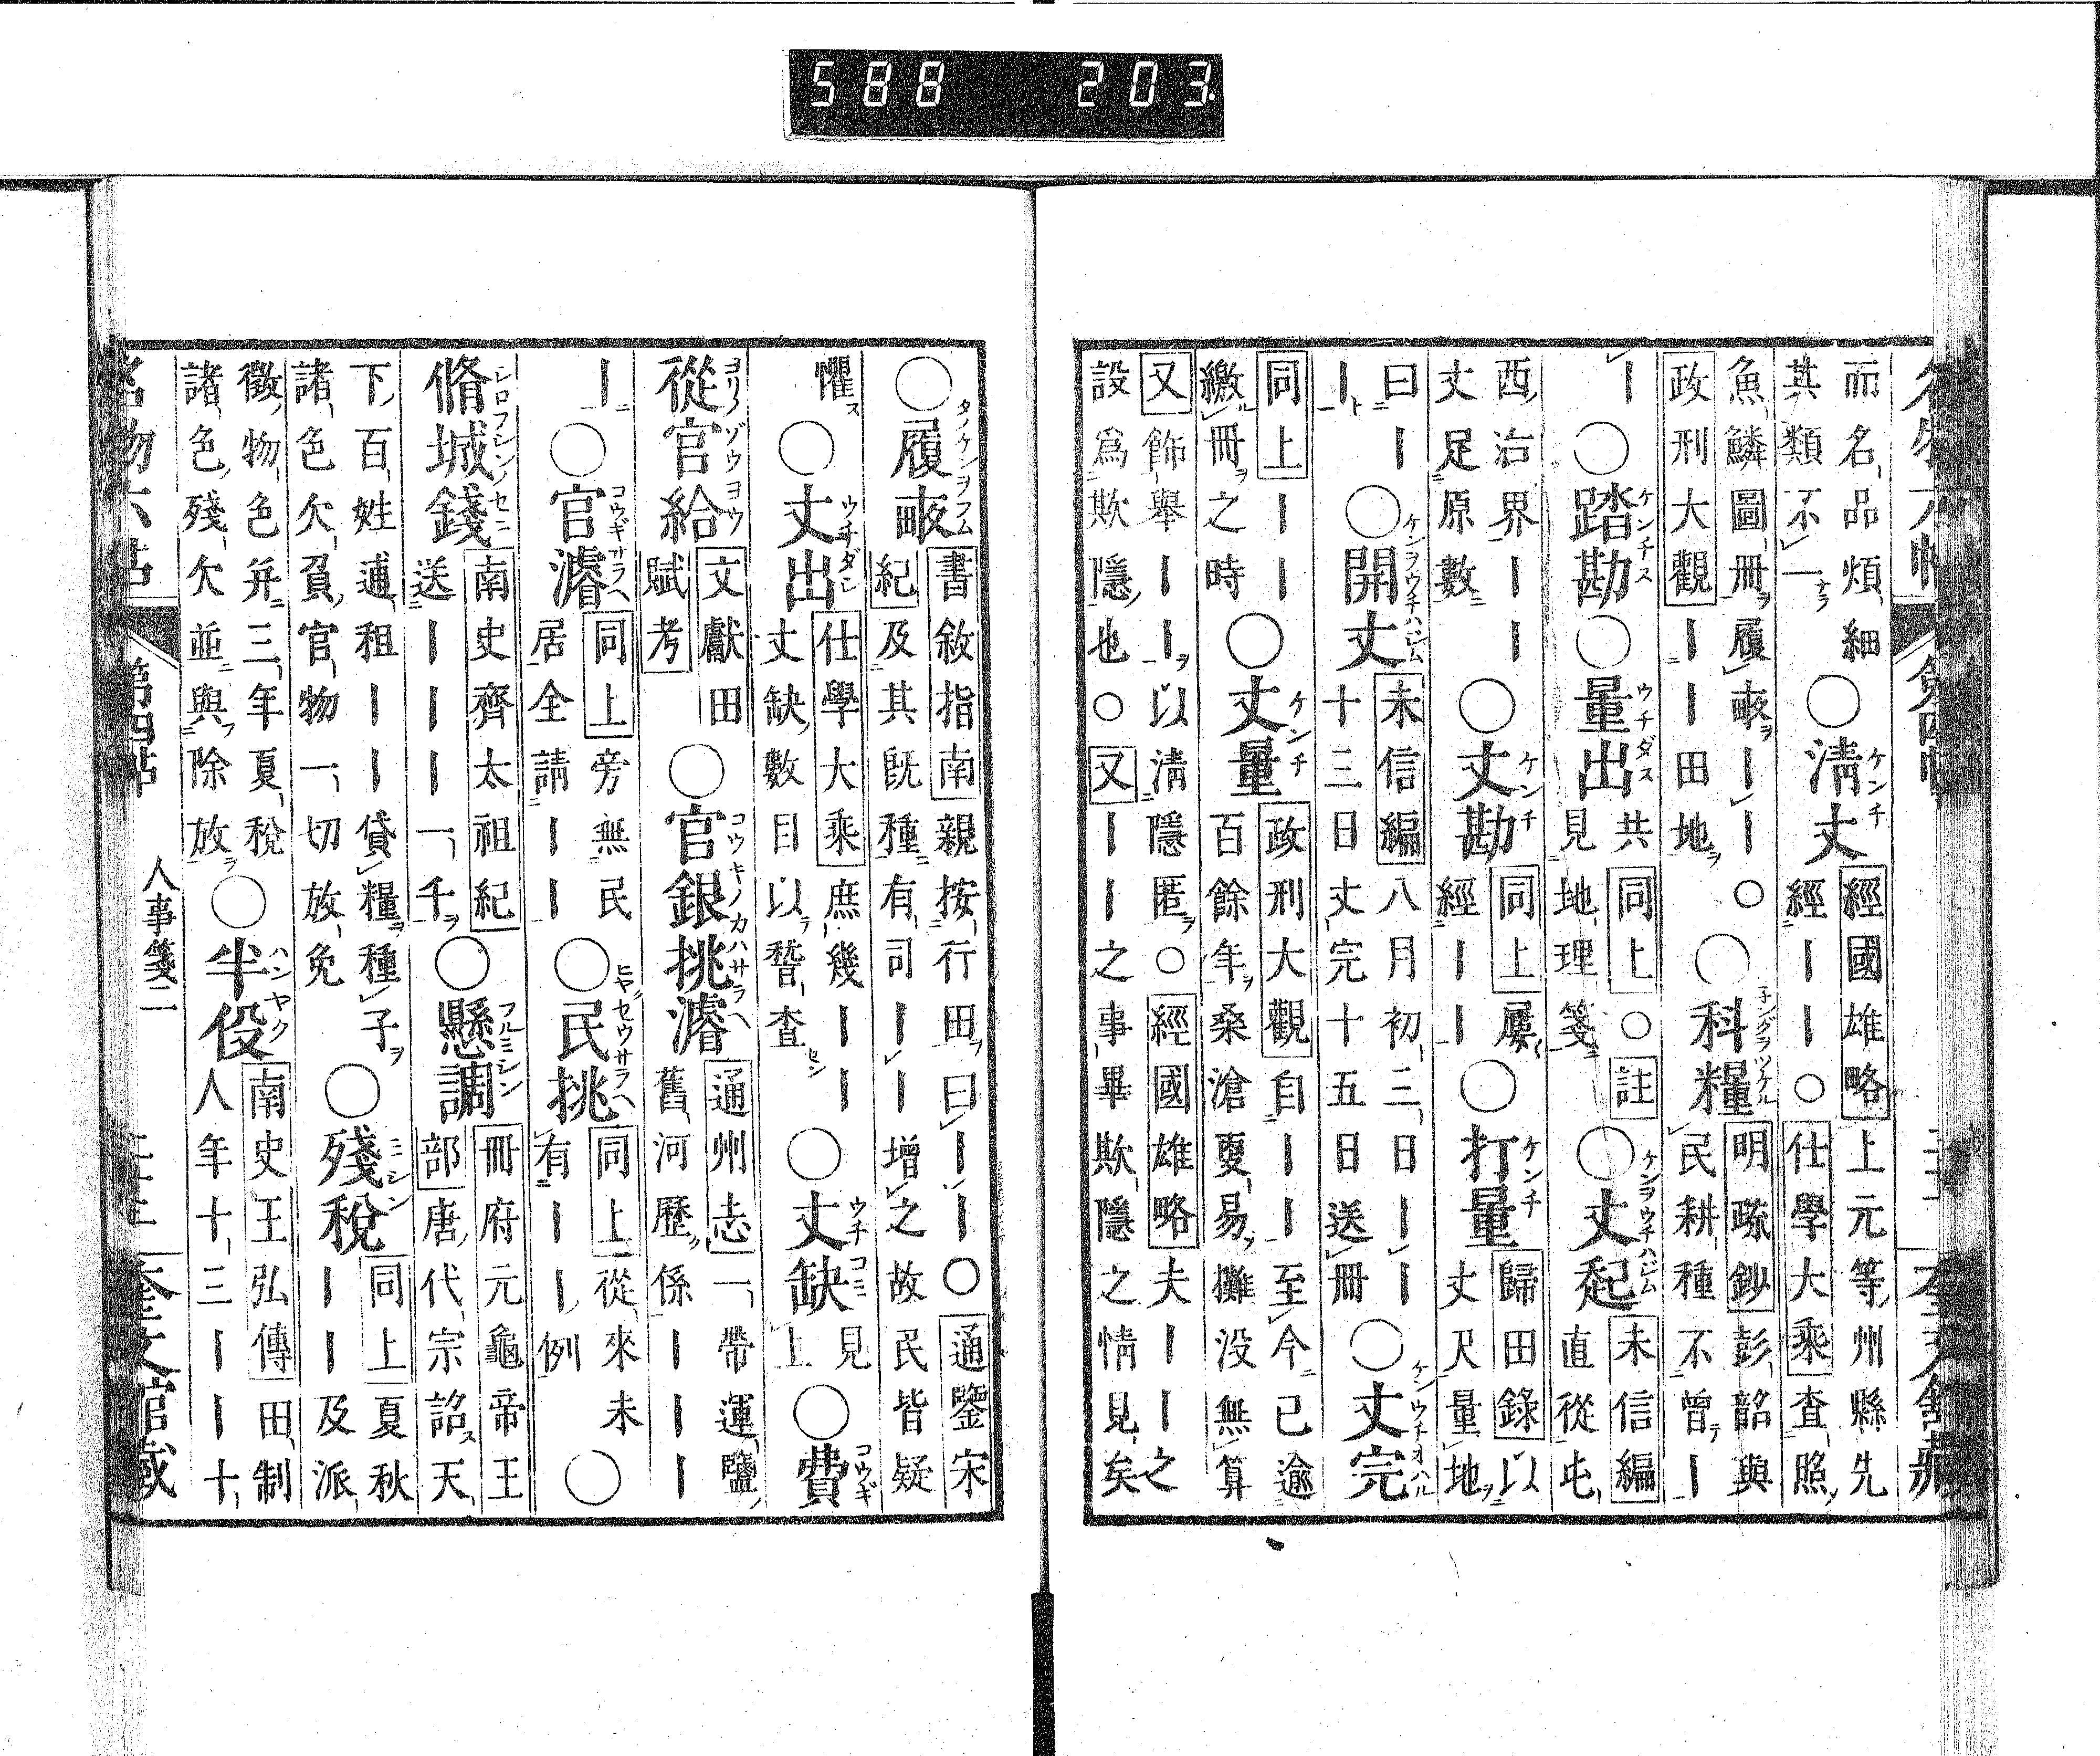 名物六帖 第四帖 奎文館藏
而名品煩細 其類不一 ○清丈 經國雄略上元等州縣先 經ーー○仕學大乘查照
魚鱗圖冊履畝ーー○ 政刑大觀ーー田地 ○科糧 明疏鈔彭韶與 民耕種不曾ー
ー○踏勘○量出 共同上○註 見地理箋 ○丈起 未信編 直從屯
西沿界ーー 丈足原數 ○丈勘 同上屢 經ーー ○打量 歸田錄以 丈尺量地
曰ー ー ○開丈 未信編八月初三日ーー 十三日丈完十五日送冊 ○丈完
同上ーー 繳冊之時 ○丈量 政刑大觀自ーー至今已逾 百餘年桑滄變易攤没無算
又飾舉ーー以清隱匿○經國雄略夫ーー之 設爲欺隱也○又ーー之事畢欺隱之情見矣
○履畝 書敘指南親按行田曰ーー○通鑒宋 紀及其既種有司ーー增之故民皆疑
懼 ○丈出 仕學大乘庶幾ーー 丈缺數目以稽查 ○丈缺 見上 ○費
從官給 文獻田 賦考 ○官銀挑濬 通州志一帶運鹽 舊河歷係ーーー
ー○官濬 同上旁無民 居全請ーー ○民挑 同上從來未 有ーー例 ○
脩城錢 南史齊太祖紀 送ーーー一千 ○懸調 冊府元龜帝王 部唐代宗詔天
下百姓逋租ーー貸糧種子 諸色欠負官物一切放免 ○殘稅 同上夏秋 ーー及派
徵物色并三年夏稅 諸色殘欠並與除放 ○半役 南史王弘傳田制 人年十三ーー十
名物六帖 第四帖 人事箋二 奎文館藏
588 203